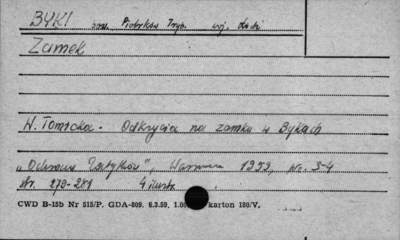 BYKI pow. Piotrków Tryb. woj. Łódź
Zamek
W. Tomicka - Odkrycia na zamku w Bykach
"Ochrona Zabytków", Warszawa 1959, nr. 3-4
str. 279-281 4 ilustr.
CWD B-15b Nr 515/P. GDA-809. 6.3.59. 1.00 karton 180/V.